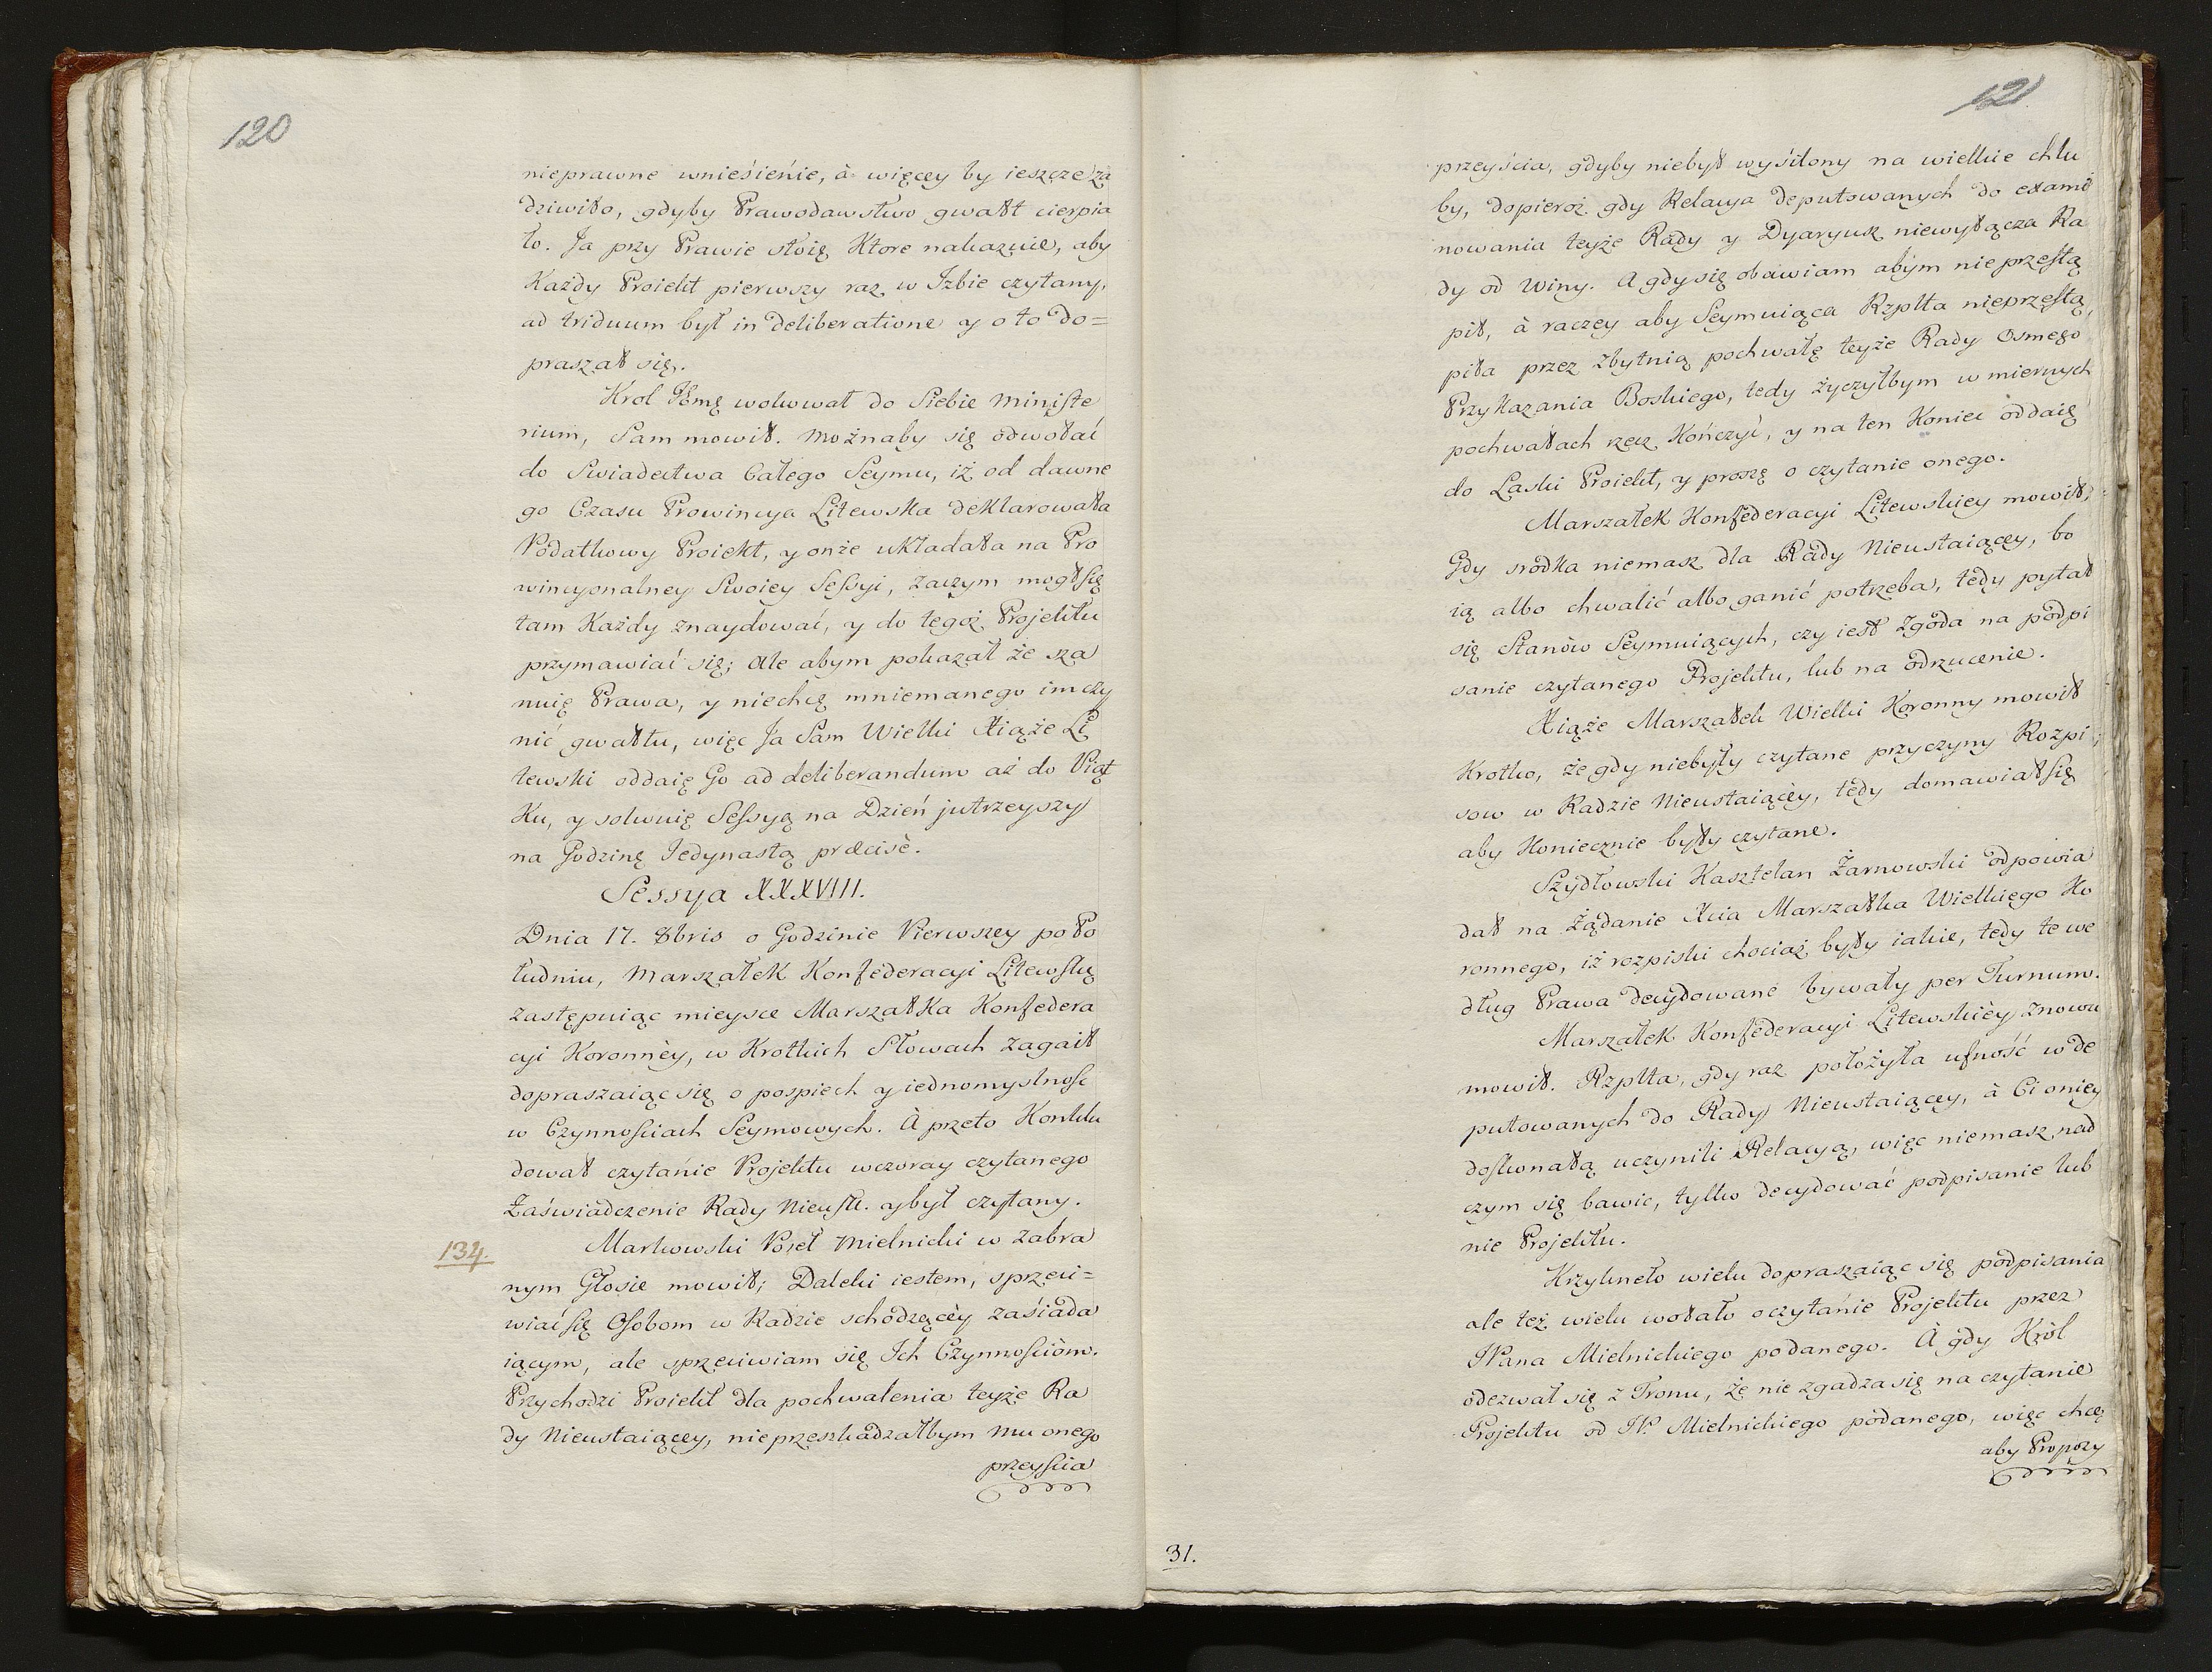 120
nieprawne wnieśienie, à więcey by ieszcze za
dziwiło, gdyby Prawodawstwo gwałt cierpia
ło. Ja przy Prawie stoię Ktore nakazuie, aby
Każdy Proiekt pierwszy raz w Izbie czytany,
ad triduum był in deliberatione y o to do=
praszał się.
Krol Jmę wokował do Siebie Ministe
rium, Sam mowił. Możnaby się odwołać
do Swiadectwa Całego Seymu, iż od dawne
go Czasu Prowincya Litewska deklarowała
Podatkowy Proiekt, y onże układała na Pro
wincyonalney Swoiey Sessyi, zaczym mógł się
tam Każdy znaydować, y do tegoż Projektu
przymawiać się; ale abym pokazał że sza
nuię Prawa, y niechcę mniemanego im czy
nić gwałtu, więc Ja Sam Wielki Xiąże Li
tewski oddaię Go ad deliberandum aż do Piąt
Ku, y solwuię Sessyą na Dzień jutrzeyszy
na Godzinę Iedynastą præcisè.
Sessya XXXVIII.
Dnia 17. 8bris o Godzinie Pierwszey po Po
łudniu, Marszałek Konfederacyi Litewskię
zastępuiąc mieysce Marszałka Konfedera
cyi Koronnèy, w Krotkich Słowach zagaił
dopraszaiąc się o pospiech y iednomyslnosc
w Czynnościach Seymowych. À przeto Konklu
dował czytanie Projektu wczoray czytanego
Zaświadczenie Rady Nieust. y był czytany.
134.
Markowski Poseł Mielnicki w zabra
nym Głosie mowił; Daleki iestem, sprzeci=
wiać się Osobom w Radzie schodzącèy zasiada
iącym, ale sprzeciwiam się Ich Czynnościòm.
Przychodzi Proiekt dla pochwalenia teyże Ra
dy Nieustaiącey, nieprzeszkadzałbym mu onego
przeyscia
121
przeyścia, gdyby niebył wyśilony na wielkie chlu
by, dopieroż gdy Relacya deputowanych do exami
nowania teyże Rady y Dyaryusz niewyłącza Ra
dy od Winy. A gdy się obawiam abym nieprzestą
pił, à raczey aby Seymuiąca Rzplta nieprzestą
piła przez zbytnią pochwałę teyże Rady Osmego
Przykazania Boskiego, tedy życzyłbym w miernych
pochwałach rzecz Kończyć, y na ten Koniec oddaię
do Laski Proiekt, y proszę o czytanie onego.
Marszałek Konfederacyi Litewskiey mowił,
Gdy srodka niemasz dla Rady Nieustaiącey, bo
ią albo chwalić albo ganić potrzeba, tedy pytał
się Stanòw Seymuiących, czy iest zgoda na podpi
sanie czytanego Projektu, lub na odrzucenie.
Xiąże Marszałek Wielki Koronny mowił
Krotko, że gdy niebyły czytane przyczyny Rozpi
sow w Radzie Nieustaiącèy, tedy domawiał się
aby Koniecznie były czytane.
Szydłowski Kasztelan Żarnowski odpowia
dał na Żądanie Xcia Marszałka Wielkiego Ko
ronnego, iż rozpiski chociaż były iakie, tedy te we
dług Prawa decydowane bywały per Turnum.
Marszałek Konfederacyi Litewskièy znowu
mowił. Rzplta, gdy raz położyła ufność w de
putowanych do Rady Nieustaiącey, à Ci oniey
doskonałą uczynili Relacyą, więc niemasz nad
czym się bawic, tylko decydować podpisanie lub
nie Projektu.
Krzyknęło wielu dopraszaiąc się podpisania
ale też wielu wołało o czytanie Projektu przez
JPana Mielnickiego podanego. À gdy Kròl
odezwał się z Tronu, że nie zgadza się na czytanie
Projektu od JP. Mielnickiego podanego, więc chcę
aby Propozy
31.